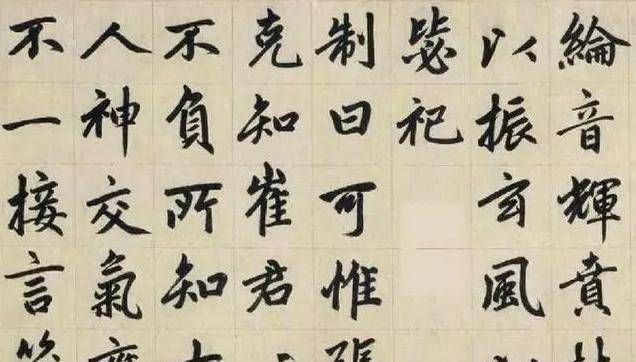 綸音輝賁
以振玄風
毖祀
制曰可惟張
克知崔君
不負所知
人神交氣
不一接言